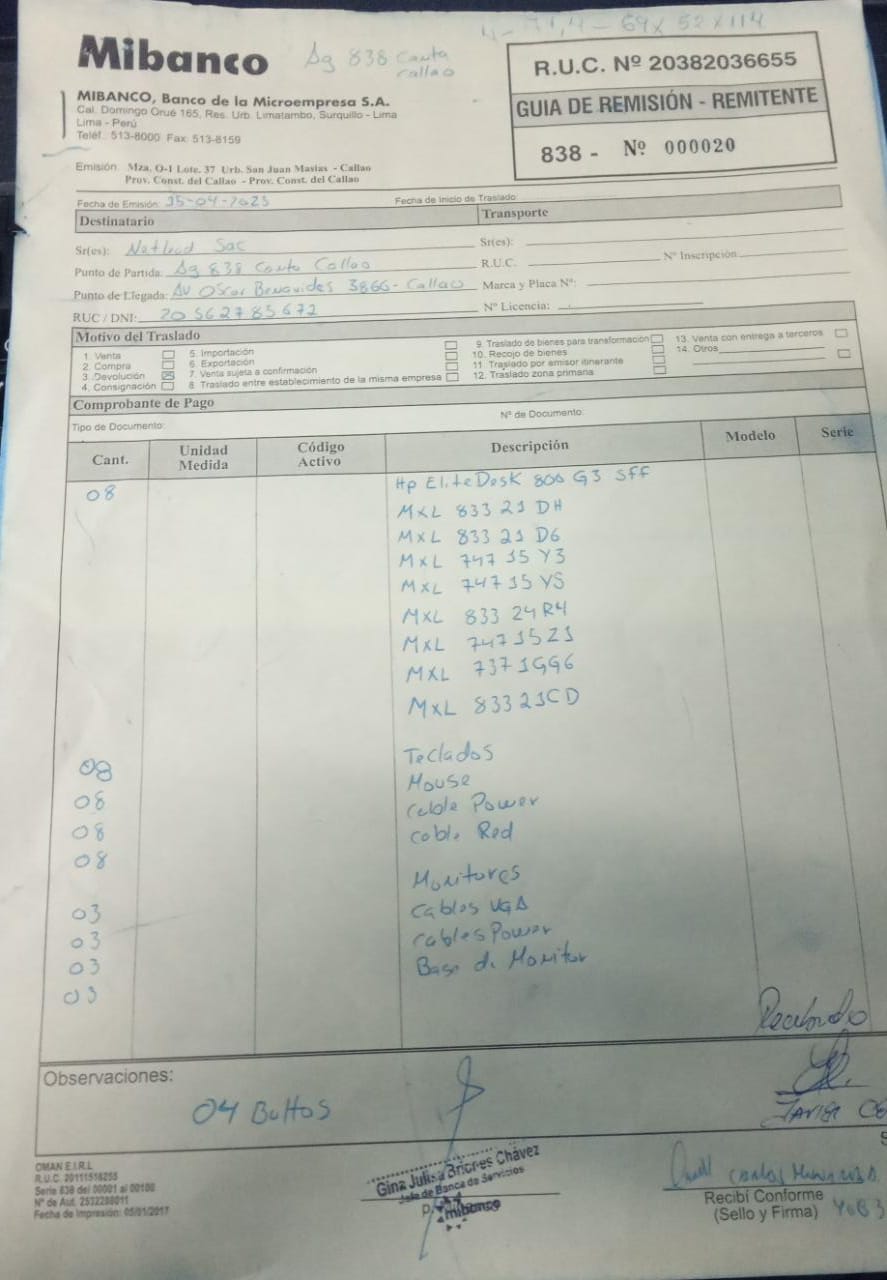 4-71,4-69x52x114
Mibanco
Ag 838 Canta
callao
R.U.C. Nº 20382036655
GUIA DE REMISIÓN - REMITENTE
838 - Nº 000020
MIBANCO, Banco de la Microempresa S.A.
Cal. Domingo Orué 165, Res. Urb. Limatambo, Surquillo - Lima
Lima - Perú
Teléf.: 513-8000 Fax: 513-8159
Emisión: Mza. O-1 Lote. 37 Urb. San Juan Masias - Callao
Prov. Const. del Callao - Prov. Const. del Callao
Fecha de Emisión: 15-04-2023 Fecha de Inicio de Traslado:
Destinatario Transporte
Sr(es): Netlead Sac Sr(es):
Punto de Partida: Ag 838 Canta Callao R.U.C. Nº Inscripción
Punto de Llegada: AV Oscar Benavides 3866-Callao Marca y Placa Nº:
RUC / DNI: 20562785672 Nº Licencia:
Motivo del Traslado
1. Venta 5. Importación 9. Traslado de bienes para transformación 13. Venta con entrega a terceros
2. Compra 6. Exportación 10. Recojo de bienes 14. Otros
3. Devolución 7. Venta sujeta a confirmación 11. Traslado por emisor itinerante
4. Consignación 8. Traslado entre establecimiento de la misma empresa 12. Traslado zona primaria
Comprobante de Pago
Tipo de Documento: Nº de Documento:
Cant. Unidad Medida Código Activo Descripción Modelo Serie
08 Hp EliteDesk 800 G3 SFF
MXL 833 21 DH
MXL 833 21 D6
MXL 747 15 Y3
MXL 747 15 YS
MXL 833 24R4
MXL 74715Z1
MXL 7371GG6
MXL 83321CD
08 Teclados
08 Mouse
08 Cable Power
08 cable Red
03 Monitores
03 Cables VGA
03 cables Power
03 Base de Monitor
Recibido
Observaciones:
04 Bultos
Javier
OMAN E.I.R.L
R.U.C. 20111516255
Serie 838 del 00001 al 00100
Nº de Aut. 2532288011
Fecha de Impresión: 05/01/2017
Gina Julissa Briones Chávez
Jefe de Banca de Servicios
mibanco
Carlos
Recibí Conforme
(Sello y Firma)